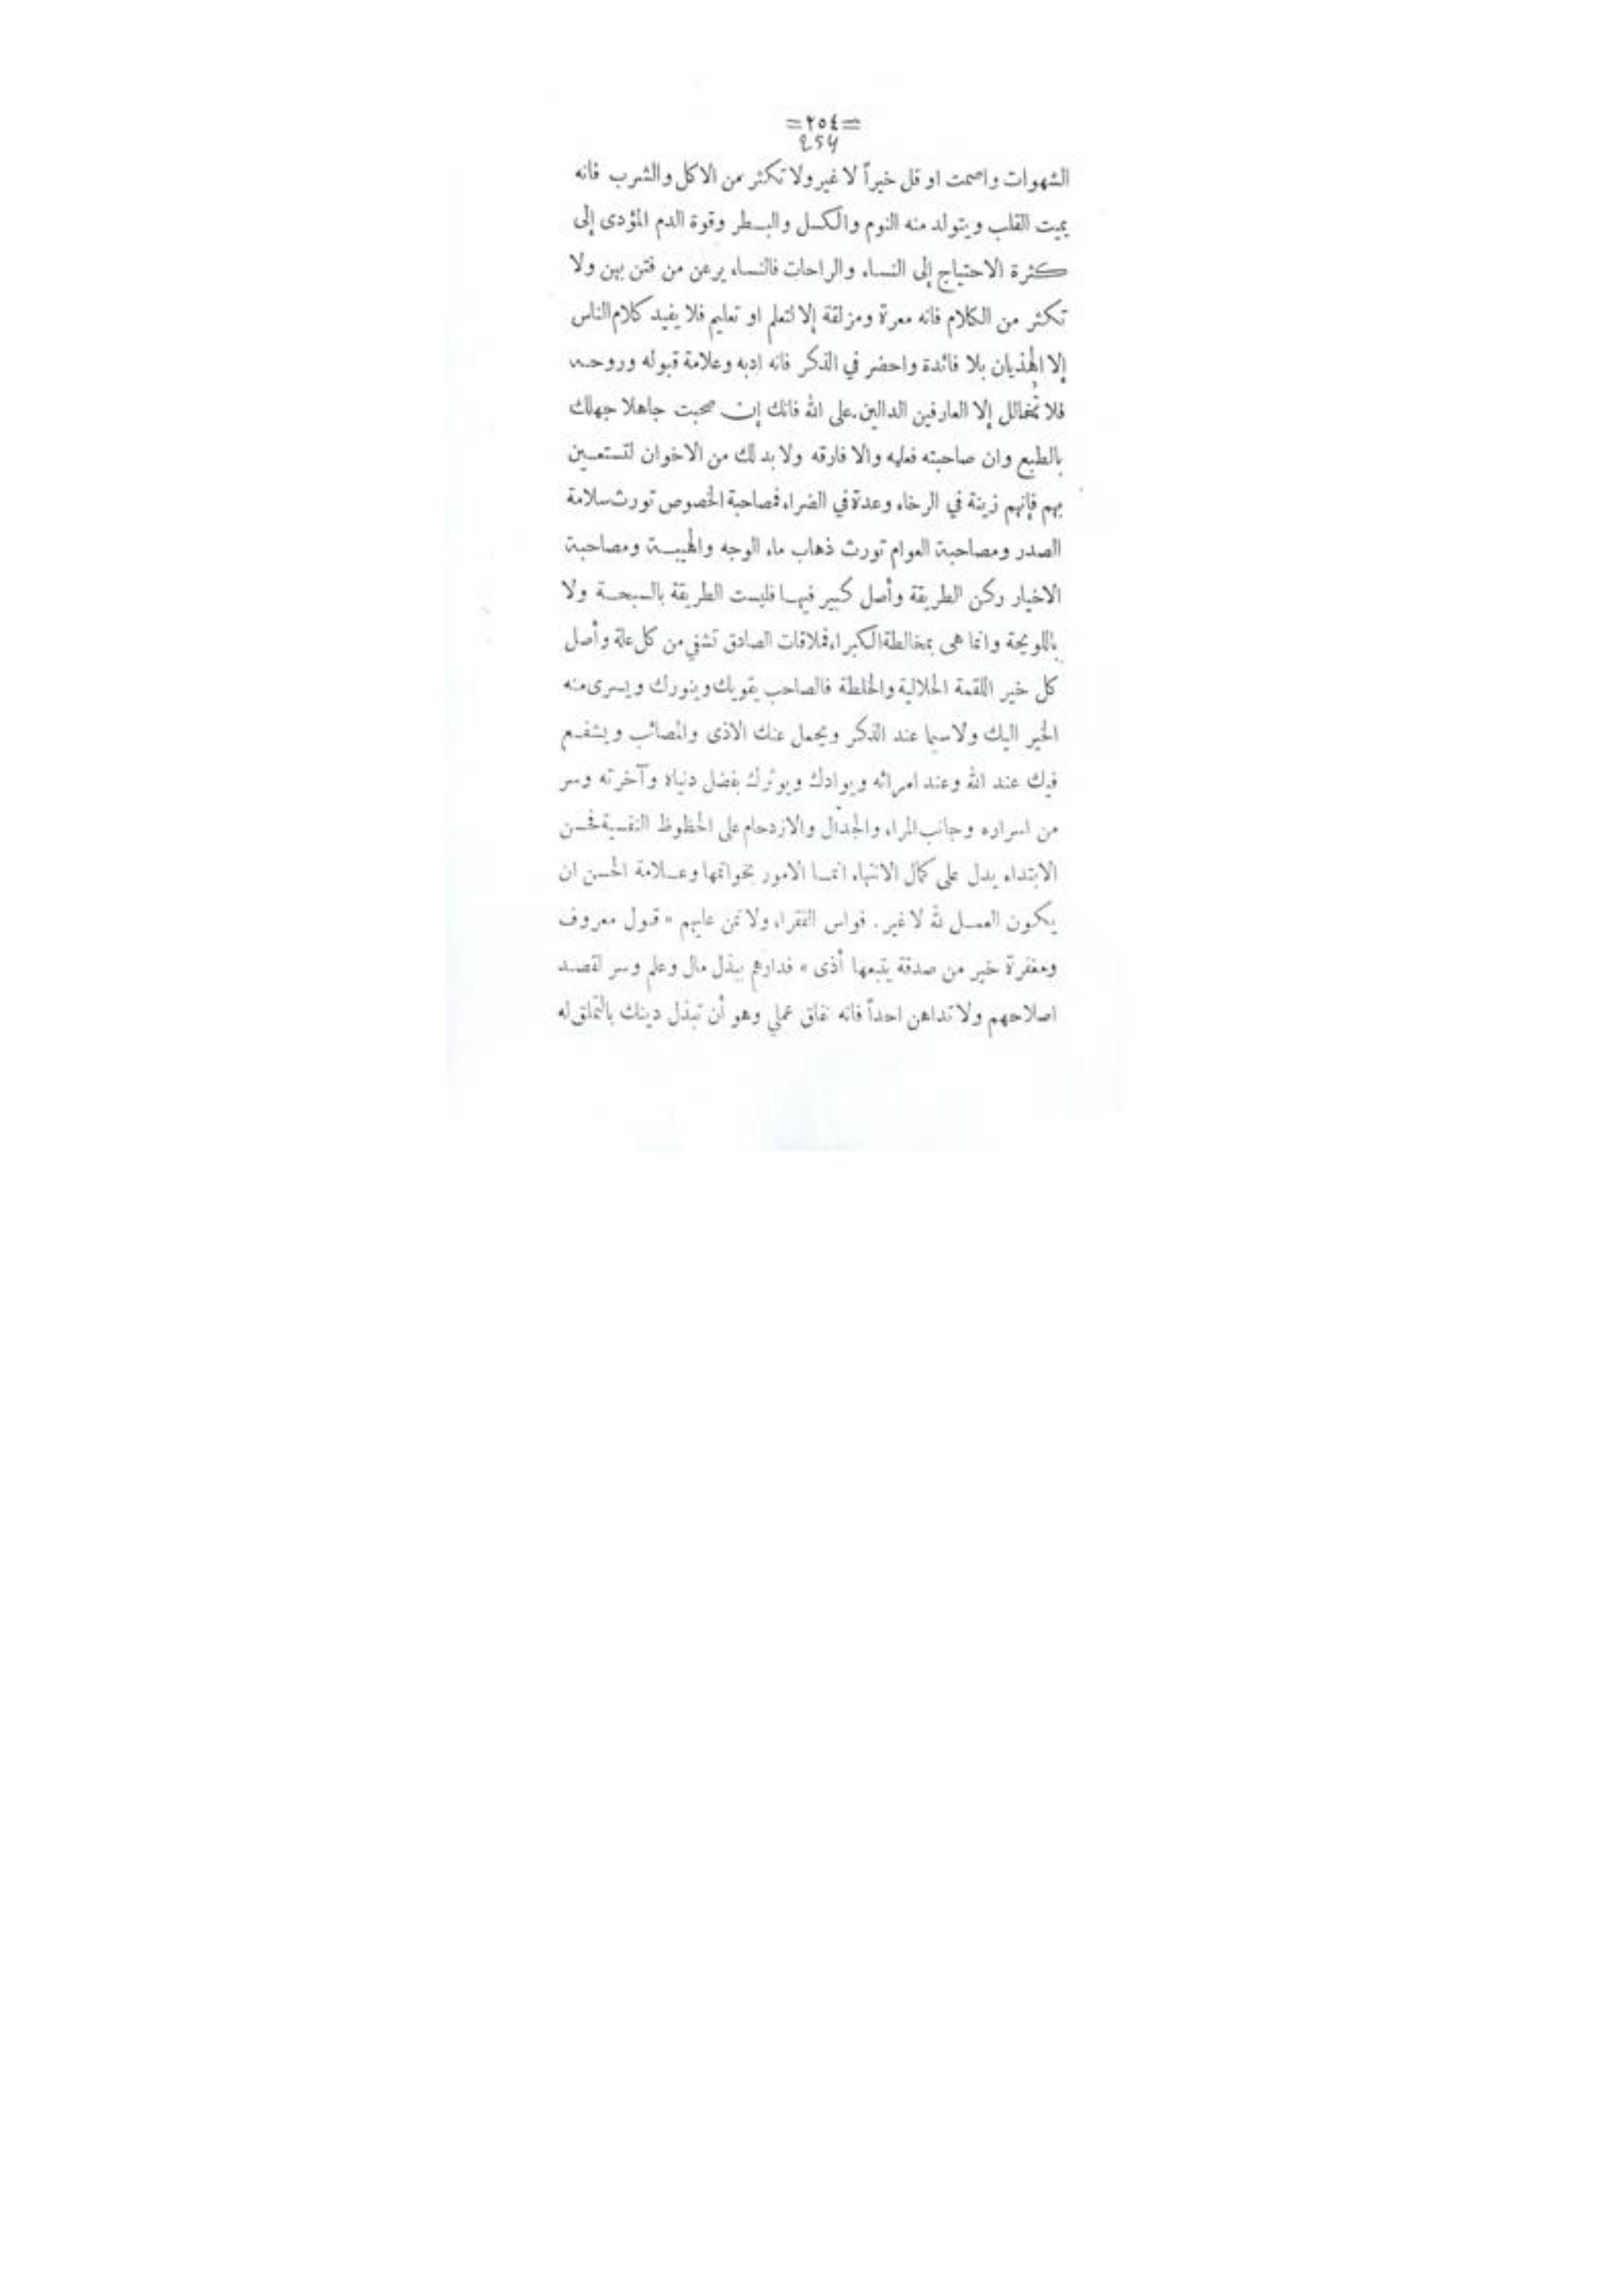 =٢٥٤=
254
الشهوات واصمت او قل خيراً لا غير ولا تكثر من الاكل والشرب فانه
يميت القلب ويتولد منه النوم والكسل والبطر وقوة الدم المؤدى إلى
كثرة الاحتياج إلى النساء والراحات فالنساء يرعن من فتن بهن ولا
تكثر من الكلام فانه معرة ومزلقة إلا لتعلم او تعليم فلا يفيد كلام الناس
إلا الهذيان بلا فائدة واحضر في الذكر فانه ادبه وعلامة قبوله وروحه
فلا إلا العارفين الدالين على الله فانك إن صحبت جاهلا جهلك
بالطبع وان صاحبته فعليه والا فارقه ولا بد لك من الاخوان لتستعين
بهم فإنهم زينة في الرخاء وعدة في الضراء فمصاحبة الخصوص تورث سلامة
الصدر ومصاحبة العوام تورث ذهاب ماء الوجه والهيبة ومصاحبة
الاخيار ركن الطريقة وأصل كبير فيها فليست الطريقة بالسبحة ولا
باللويحة وانما هى بمخالطة الكبراء فملاقات الصادق تشفي من كل علة وأصل
كل خير اللقمة الحلالية والخلطة فالصاحب يقويك وينورك ويسرى منه
الخير اليك ولاسيما عند الذكر ويحمل عنك الاذى والمصائب ويشفع
فيك عند الله وعند امرائه ويوادك ويوثرك بفضل دنياه وآخرته وسر
من اسراره وجانب المراء والجدال والازدحام على الحظوظ النفسية فحسن
الابتداء يدل على كمال الانتهاء انما الامور بخواتمها وعلامة الحسن ان
يكون العمل لله لا غير . فواس الفقراء ولا تمن عليهم « قول معروف
ومغفرة خير من صدقة يتبعها أذى » فدارهم ببذل مال وعلم وسر لقصد
اصلاحهم ولا تداهن احداً فانه نفاق عملي وهو أن تبذل دينك بالتملق له